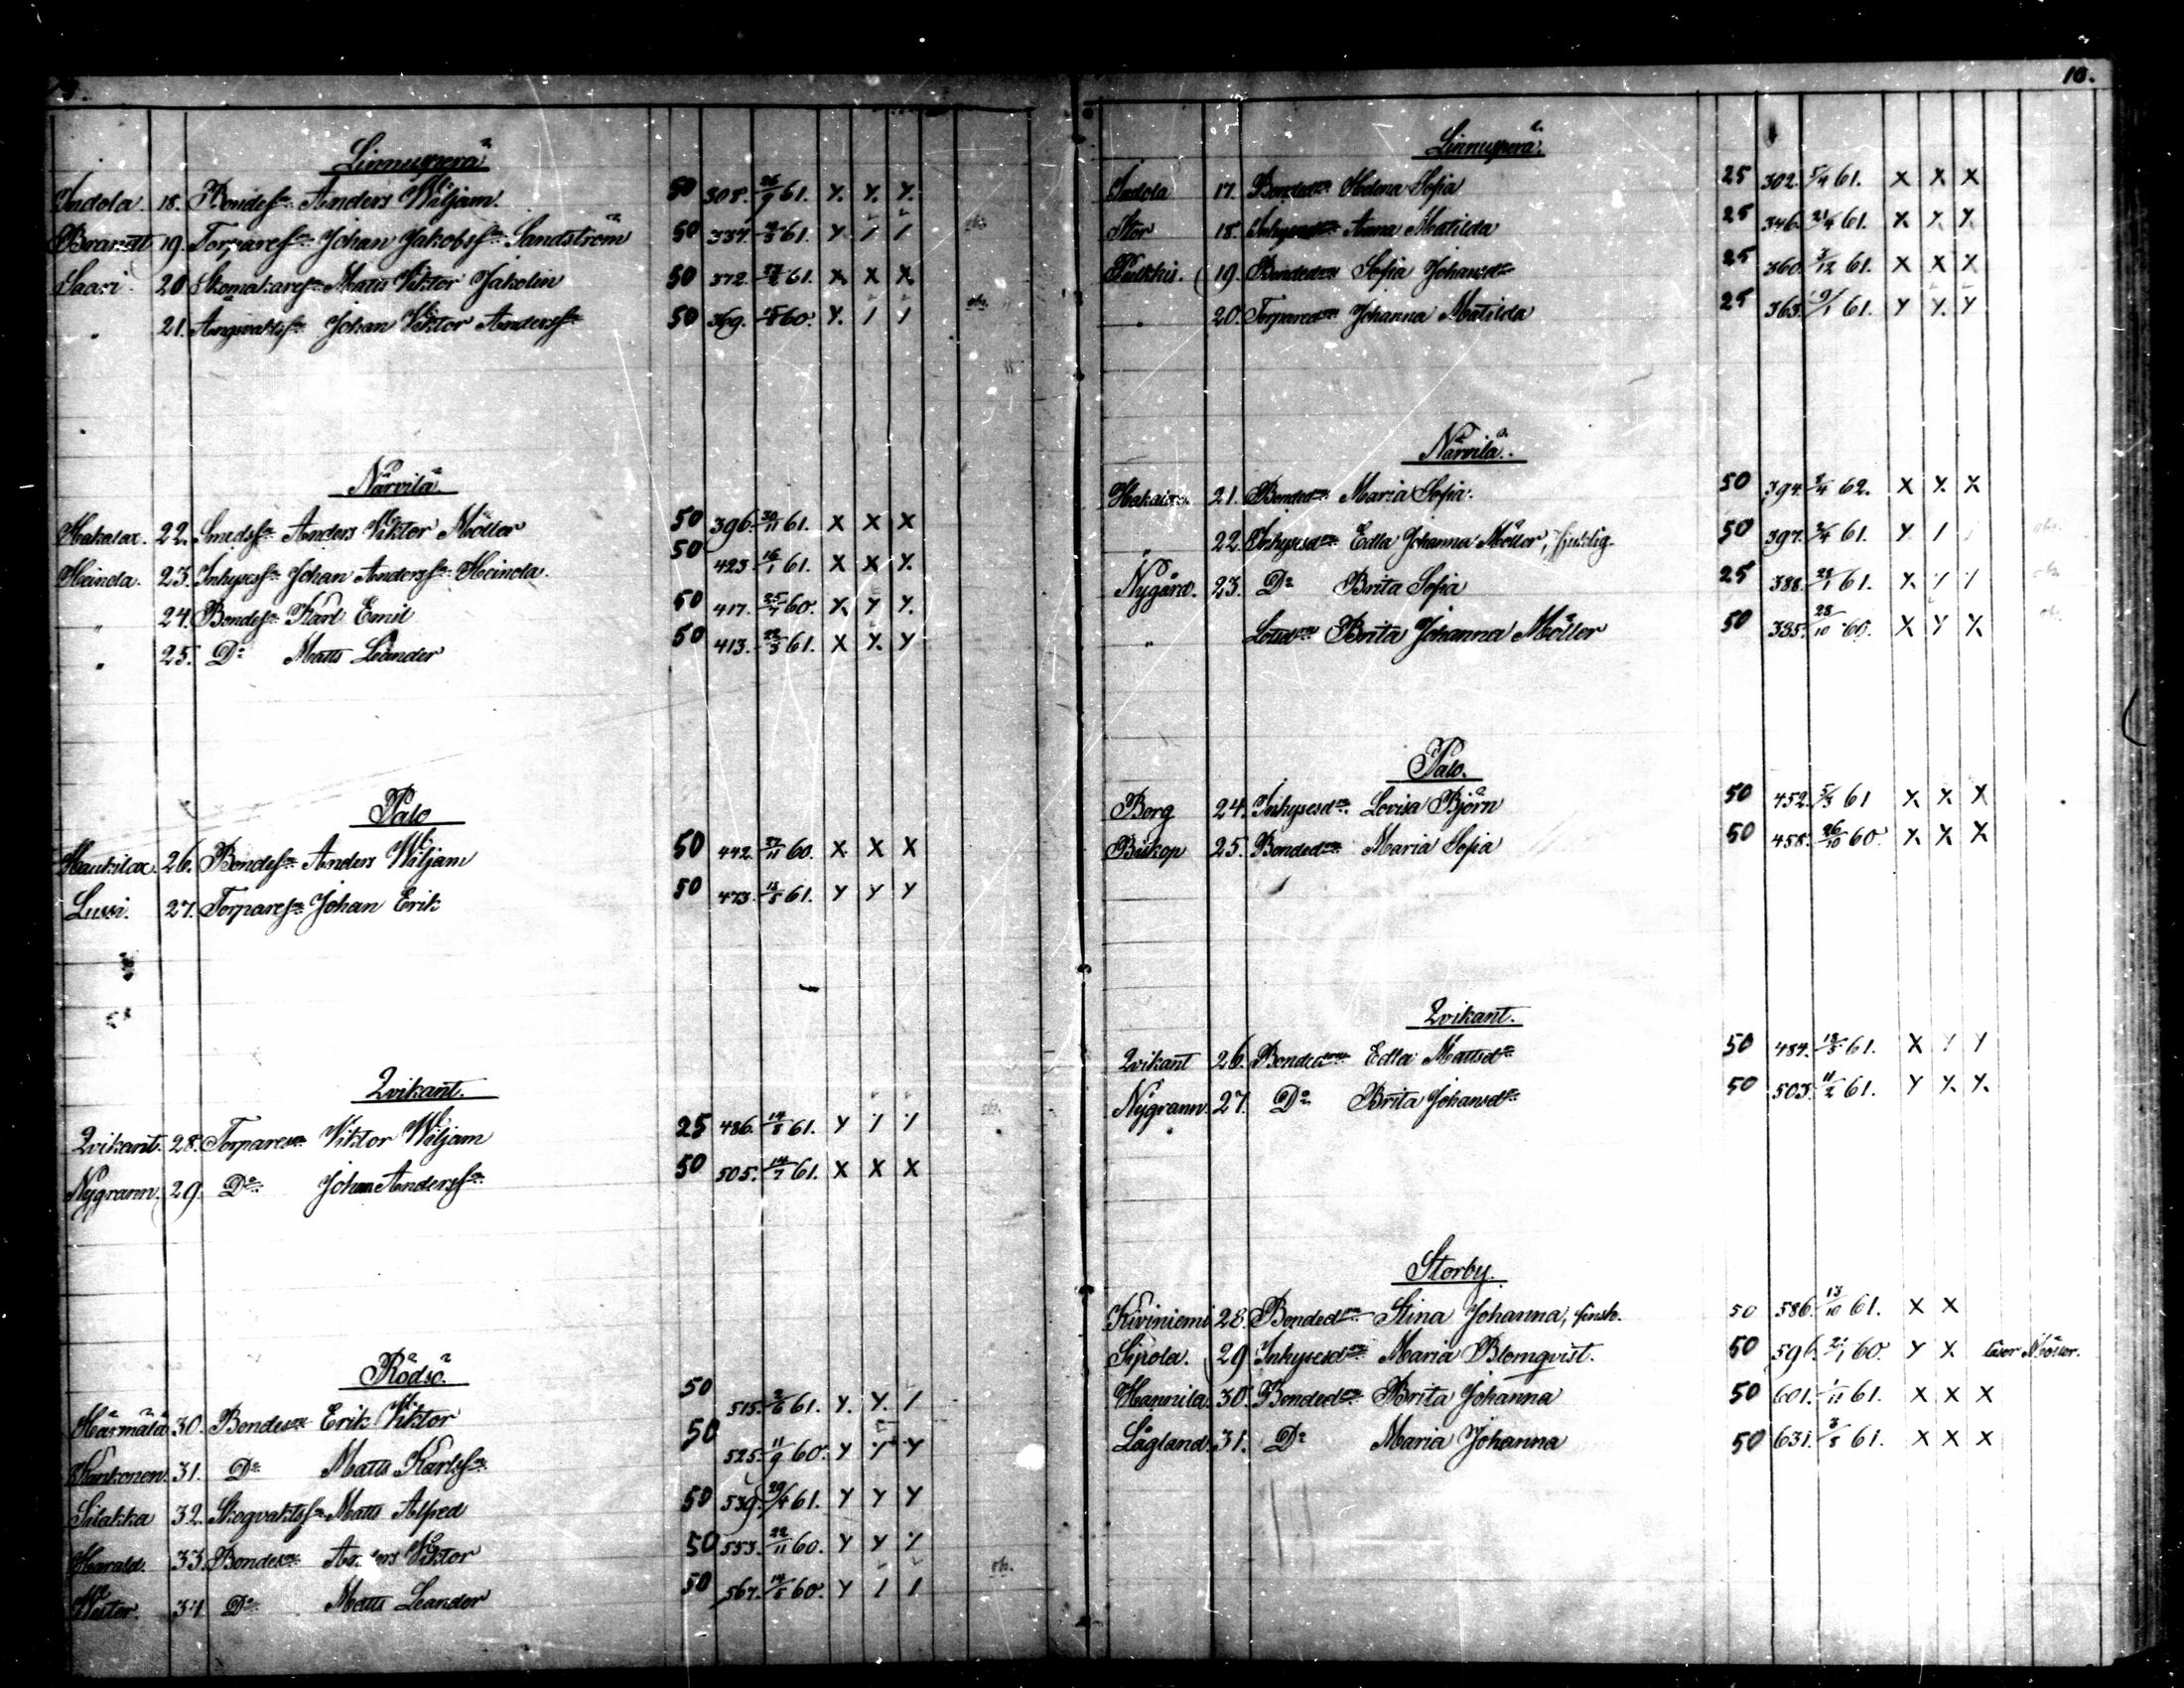 Linnuperä
Indola. 18. Bondes. Anders Wiljam. 50 308. 26/9 61. X. X. X.
Brandt 19. Torpares. Johan Jakobss. Sandström 50 337. 61. X / / obs.
Saari. 20. Skomakares. Matts Viktor Jakolin 50 372. 61. X. X X.
" 21. Ängsvaktss. Johan Viktor Anderss. 50 369. 60. X. / / obs.
Närvilä.
Hakalax. 22. Smedss. Anders Viktor Möller 50 396. 30/11 61. X X X
Heinola. 23. Inhysess. Johan Anderss. Heinola. 50 423. 16/1 61. X X X.
" 24. Bondes. Karl Emil 50 417. 60. X. X X.
" 25. Do Matts Leander 50 413. 61. X X. X
Palo
Haukilax. 26. Bondes. Anders Wiljam 50 442. 60. X X X
Lussi. 27. Torpares. Johan Erik 50 473. 61. X X X
Qvikant.
Qvikant. 28. Torpares. Viktor Wiljam 25 486. 14/8 61. X / / obs.
Nygrann. 29. Do. Johan Anderss. 50 505. 14/7 61. X X X
Rödsö.
Härmälä 30. Bondes. Erik Viktor 50 515. 2/6 61. X. X. /
Kankonen. 31. Do. Matts Karlss. 50 525. 11/9 60. X X X
Silakka 32. Skogvaktss. Matts Alfred 50 539. 61. X X X
Harald. 33. Bondes. Anders Viktor 50 553. 22/11 60. X X X
34 Do. Matts Leander 50 567. 14/5 60. X / / obs.
10.
Linnuperä.
Indola 17. Bonded. Helena Sofia 25 302. 5/4 61. X X X
Stor 18. Inhysesd. Anna Matilda 25 346. 61. X X X.
Pulkkis. 19. Bonded. Sofia Johansd. 25 360. 3/12 61. X X X
" 20. Torpared. Johanna Matilda 25 363. 61. X X. X
Närvilä.
Hakalax. 21. Bonded. Maria Sofia. 50 394. 62. X X. X
" 22. Inhysesd. Edla Johanna Möller, sjuklig. 50 397. 61. X / / obs.
Nygård. 23. Do Brita Sofia 25 388. 61. X. / / obs.
" Brita Johanna Möller 50 385. 28/10 60. X X X. obs.
Palo.
Borg 24. Inhysesd. Lovisa Björn 50 452. 5/3 61 X. X. X
Biskop 25. Bonded. Maria Sofia 50 458. 26/10 60. X. X X
Qvikant.
Qvikant 26. Bonded. Edla Mattsd. 50 484. 61. X X X
Nygrann. 27. Do. Brita Johansd. 50 503. 11/2 61. X X. X.
Storby.
Kiviniemi 28. Bonded. Stina Johanna, finsk. 50 586. 13/10 61. X X
Sipola. 29. Inhysesd. Maria Blomqvist. 50 596. 60. X X läser
Hannila. 30. Bonded. Brita Johanna 50 601. 1/11 61. X X X
Lågland. 31. Do Maria Johanna 50 631. 61. X X X